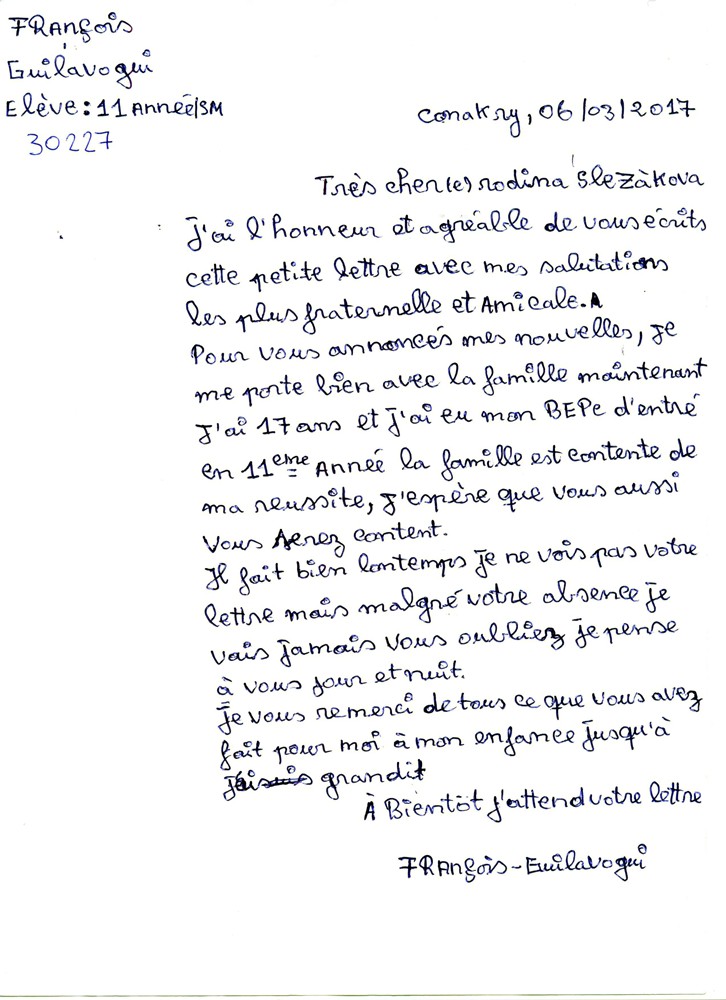 FRANçois
Guilavogui
Elève: 11 Année/SM
30227
Conakry, 06/03/2017
Très cher(e) rodina Slezàkova
J'ai l'honneur et agréable de vous écrits
cette petite lettre avec mes salutations
les plus fraternelle et Amicale. A
Pour vous annoncés mes nouvelles, je
me porte bien avec la famille maintenant
J'ai 17 ans et j'ai eu mon BEPe d'entré
en 11eme Année la famille est contente de
ma reussite, j'espère que vous aussi
vous serez content.
Il fait bien lontemps je ne vois pas votre
lettre mais malgré votre absence je
vais jamais vous oubliez je pense
à vous jour et nuit.
Je vous remerci de tous ce que vous avez
fait pour moi à mon enfance jusqu'à
grandit
À Bientôt j'attend votre lettre
FRANçois-Guilavogui